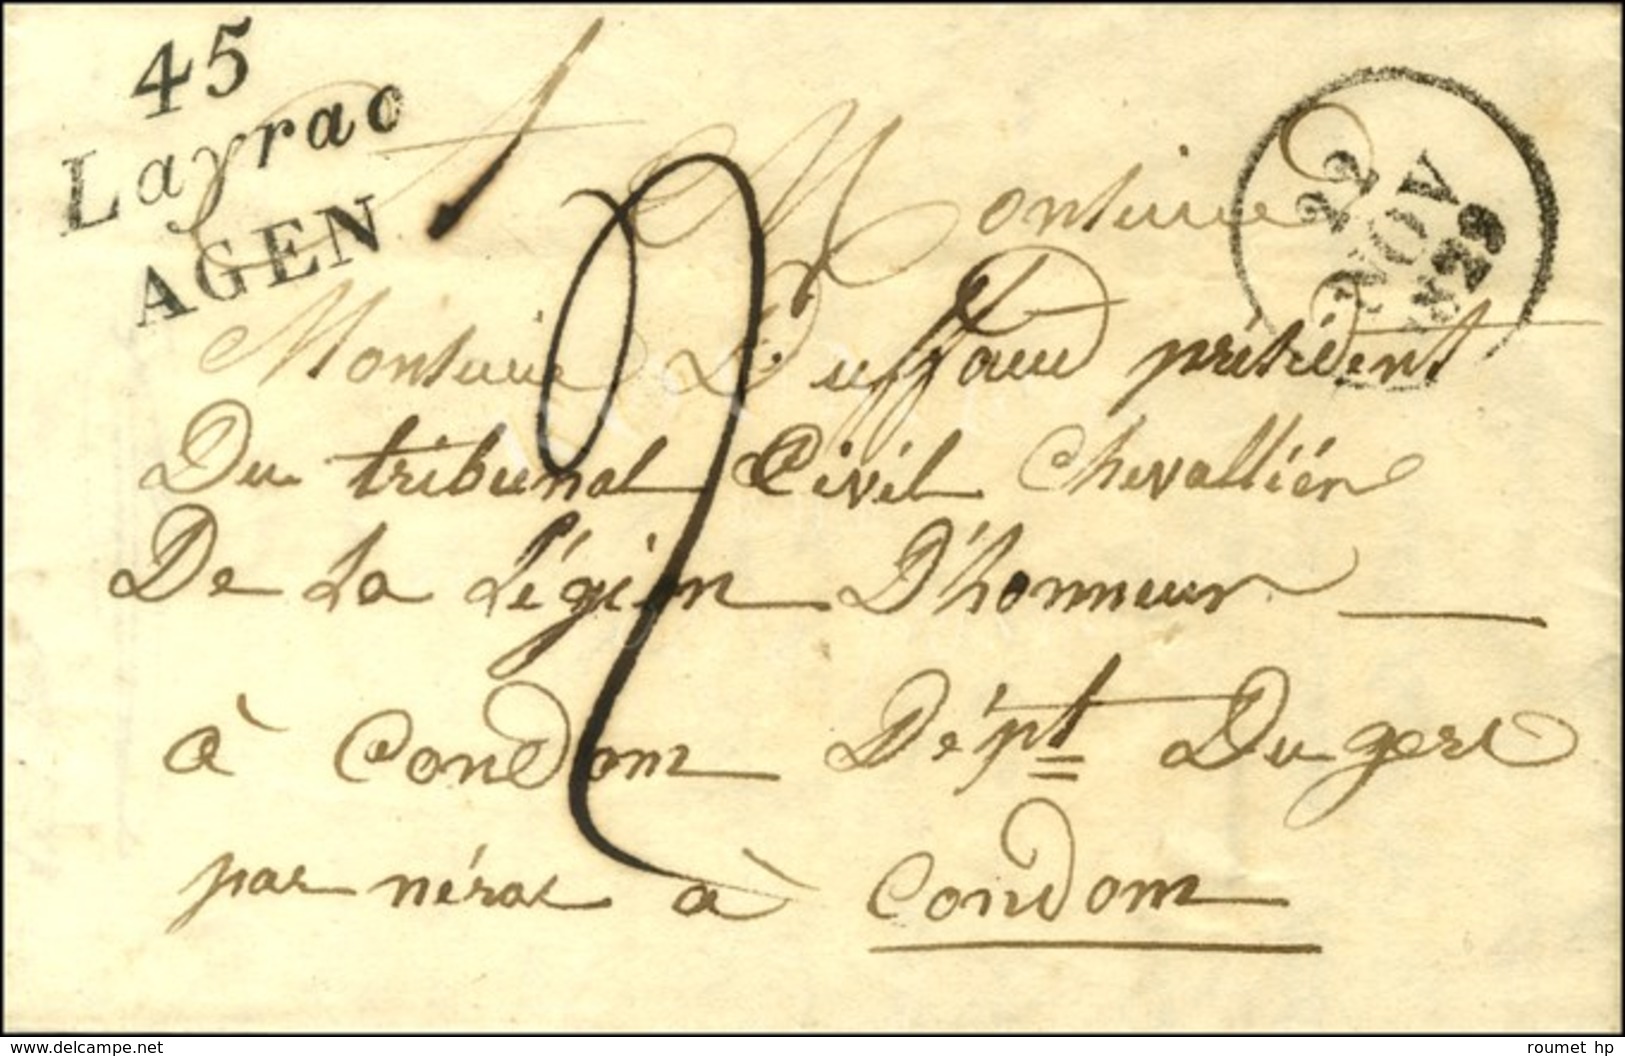 45
Layrac
AGEN
22
NOV
1829
2
Monsieur
Monsieur Duffau président
Du tribunal Civil Chevalliér
De La Légion D'honneur
à Condom Dépt Du gers
par nérac à Condom
www.delcampe.net
roumet hp